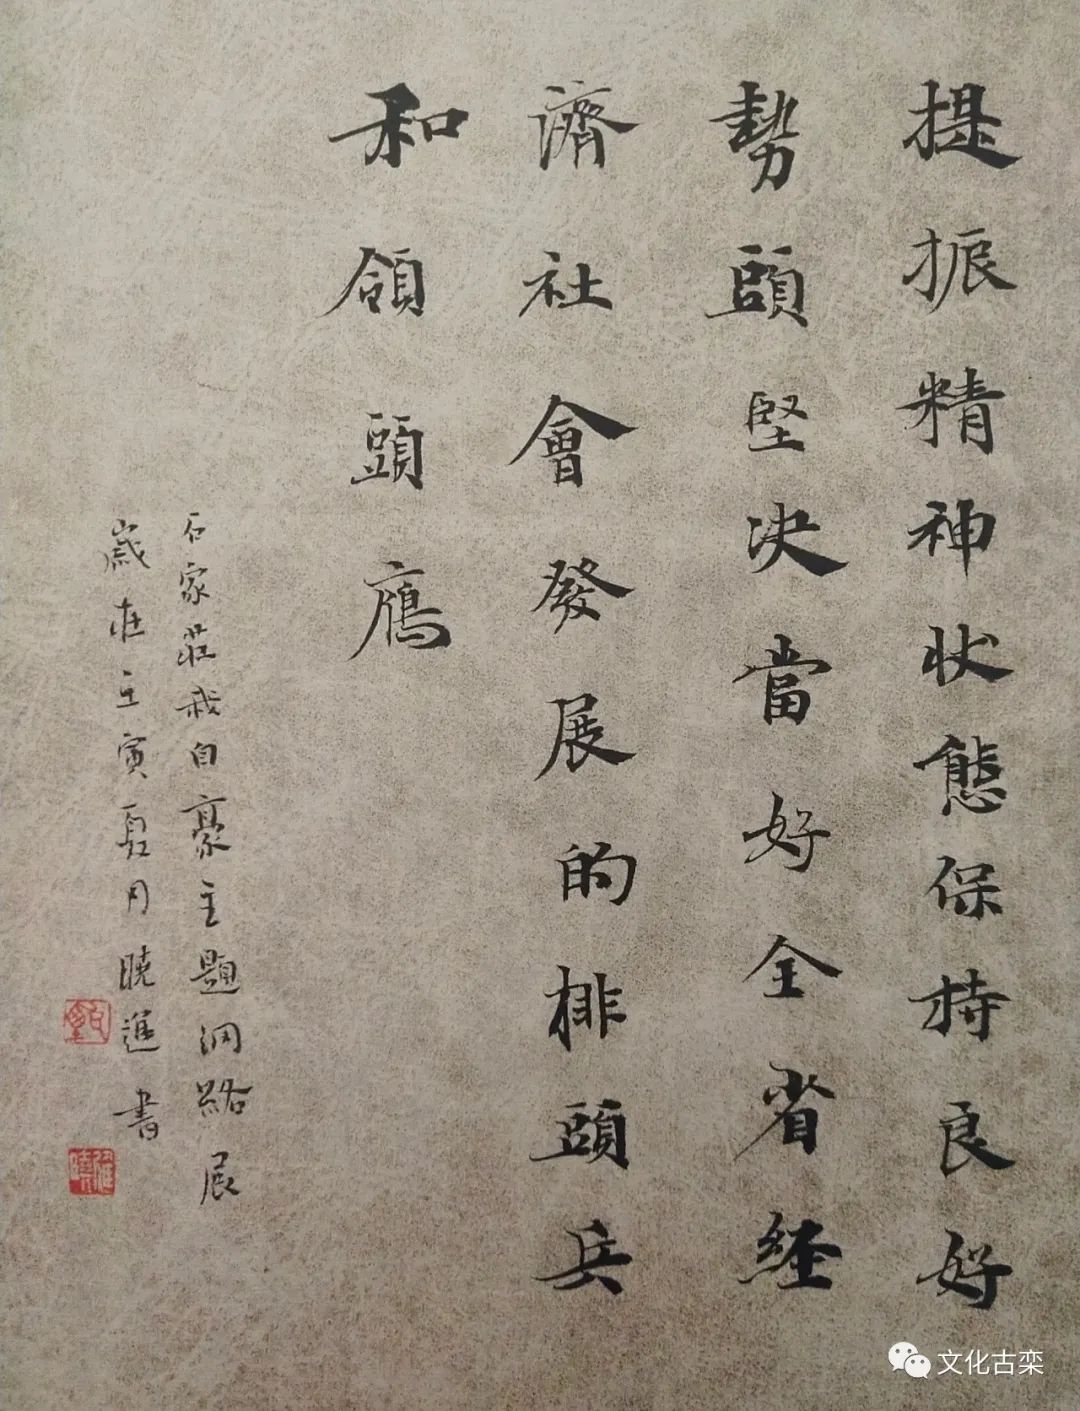 提振精神状態保持良好
勢頭堅决當好全省经
濟社會發展的排頭兵
和領頭鴈
石家莊我自豪主題網絡展
歲在壬寅夏月曉進書
文化古栾